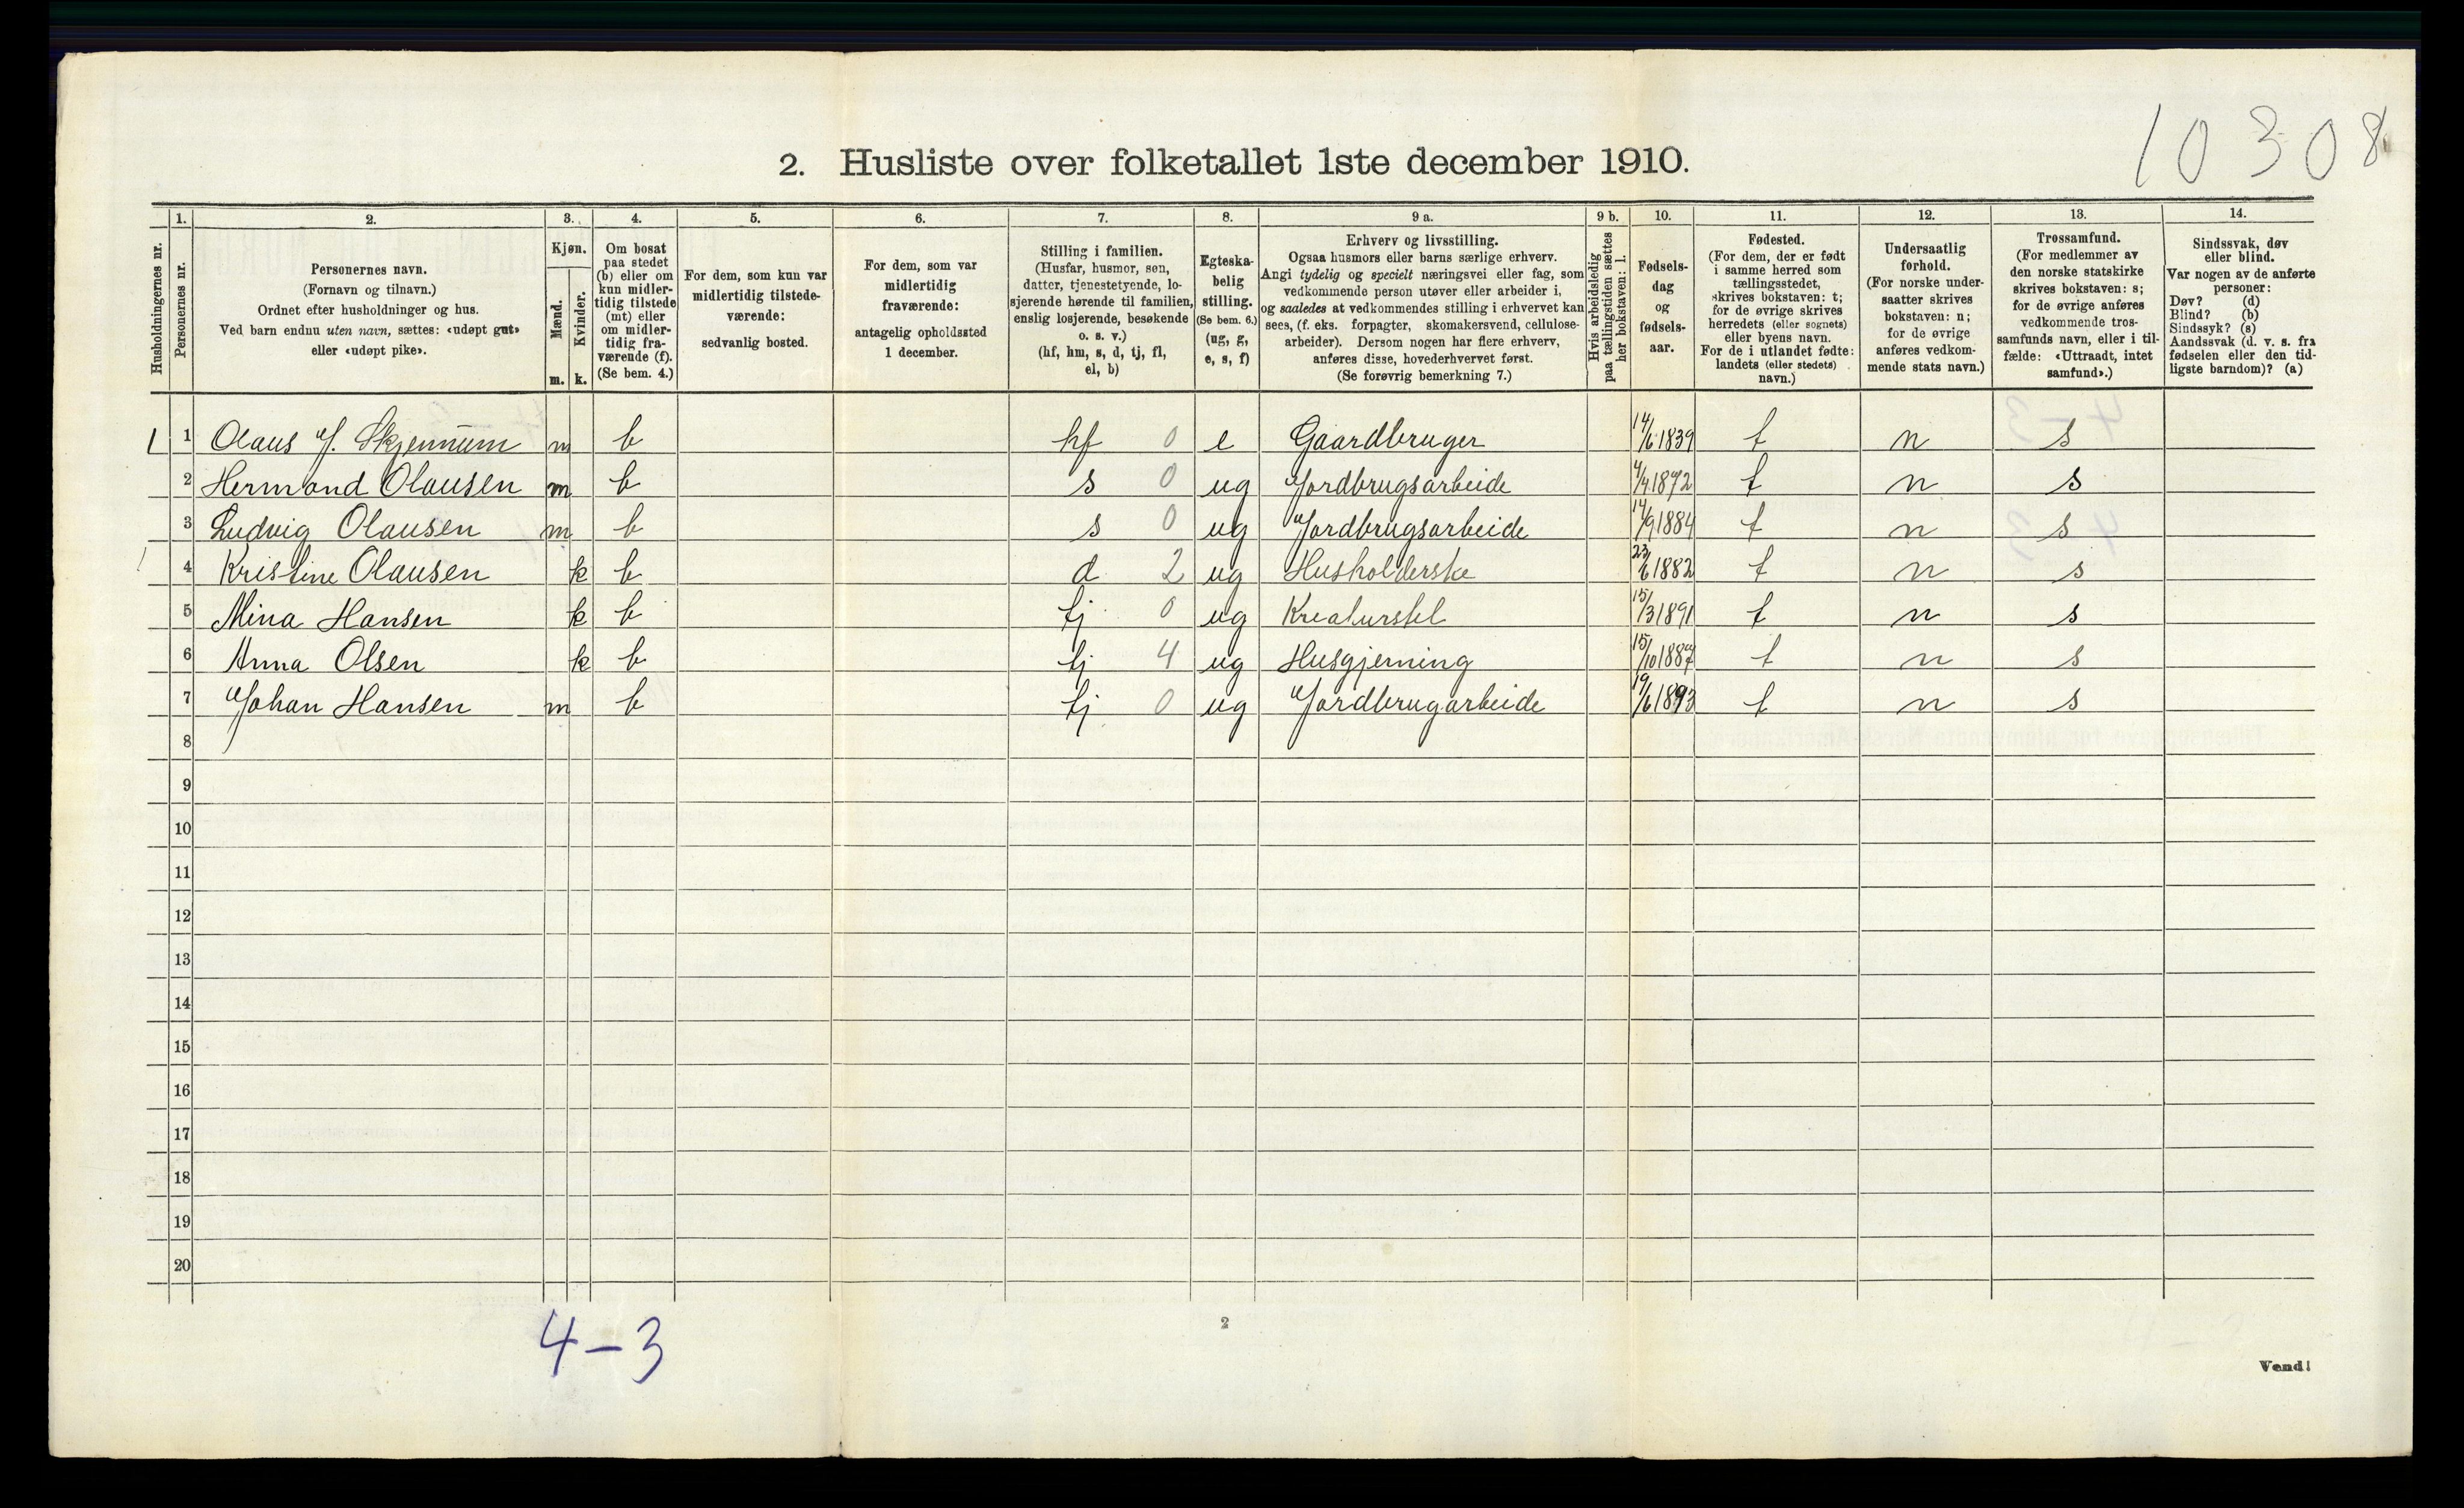 10308
2. Husliste over folketallet 1ste december 1910.
1. 2. 3. 4. 5. 6. 7. 8. 9 a. 9 b. 10. 11. 12. 13. 14.
Husholdningernes nr.
Personernes nr.
Personernes navn.
(Fornavn og tilnavn.)
Ordnet efter husholdninger og hus.
Ved barn endnu uten navn, sættes: «udøpt gut»
eller «udøpt pike».
Kjøn.
Mænd.
Kvinder.
m. k.
Om bosat
paa stedet
(b) eller om
kun midler-
tidig tilstede
(mt) eller
om midler-
tidig fra-
værende (f).
(Se bem. 4.)
For dem, som kun var
midlertidig tilstede-
værende:
sedvanlig bosted.
For dem, som var
midlertidig
fraværende:
antagelig opholdssted
1 december.
Stilling i familien.
(Husfar, husmor, søn,
datter, tjenestetyende, lo-
sjerende hørende til familien,
enslig losjerende, besøkende
o. s. v.)
(hf, hm, s, d, tj, fl,
el, b)
Egteska-
belig
stilling.
(Se bem. 6.)
(ug, g,
e, s, f)
Erhverv og livsstilling.
Ogsaa husmors eller barns særlige erhverv.
Angi tydelig og specielt næringsvei eller fag, som
vedkommende person utøver eller arbeider i,
og saaledes at vedkommendes stilling i erhvervet kan
sees, (f. eks. forpagter, skomakersvend, cellulose-
arbeider). Dersom nogen har flere erhverv,
anføres disse, hovederhvervet først.
(Se forøvrig bemerkning 7.)
Hvis arbeidsledig
paa tællingstiden sættes
her bokstaven: l.
Fødsels-
dag
og
fødsels-
aar.
Fødested.
(For dem, der er født
i samme herred som
tællingsstedet,
skrives bokstaven: t;
for de øvrige skrives
herredets (eller sognets)
eller byens navn.
For de i utlandet fødte:
landets (eller stedets)
navn.)
Undersaatlig
forhold.
(For norske under-
saatter skrives
bokstaven: n;
for de øvrige
anføres vedkom-
mende stats navn.)
Trossamfund.
(For medlemmer av
den norske statskirke
skrives bokstaven: s;
for de øvrige anføres
vedkommende tros-
samfunds navn, eller i til-
fælde: «Uttraadt, intet
samfund».)
Sindssvak, døv
eller blind.
Var nogen av de anførte
personer:
Døv? (d)
Blind? (b)
Sindssyk? (s)
Aandssvak (d. v. s. fra
fødselen eller den tid-
ligste barndom)? (a)
1 1 Olaus J. Skjennum m b hf 0 e Gaardbruger 14/6 1839 t n s
2 Hermand Olausen m b s 0 ug Jordbrugsarbeide 4/4 1872 t n s
3 Ludvig Olausen m b s 0 ug Jordbrugsarbeide 14/9 1884 t n s
4 Kristine Olausen k b d 2 ug Husholderske 23/6 1882 t n s
5 Mina Hansen k b tj 0 ug Kreaturstel 15/3 1891 t n s
6 Anna Olsen k b tj 4 ug Husgjerning 15/10 1887 t n s
7 Johan Hansen m b tj 0 ug Jordbrugarbeide 19/6 1893 t n s
8
9
10
11
12
13
14
15
16
17
18
19
20
4-3
2
Vend!